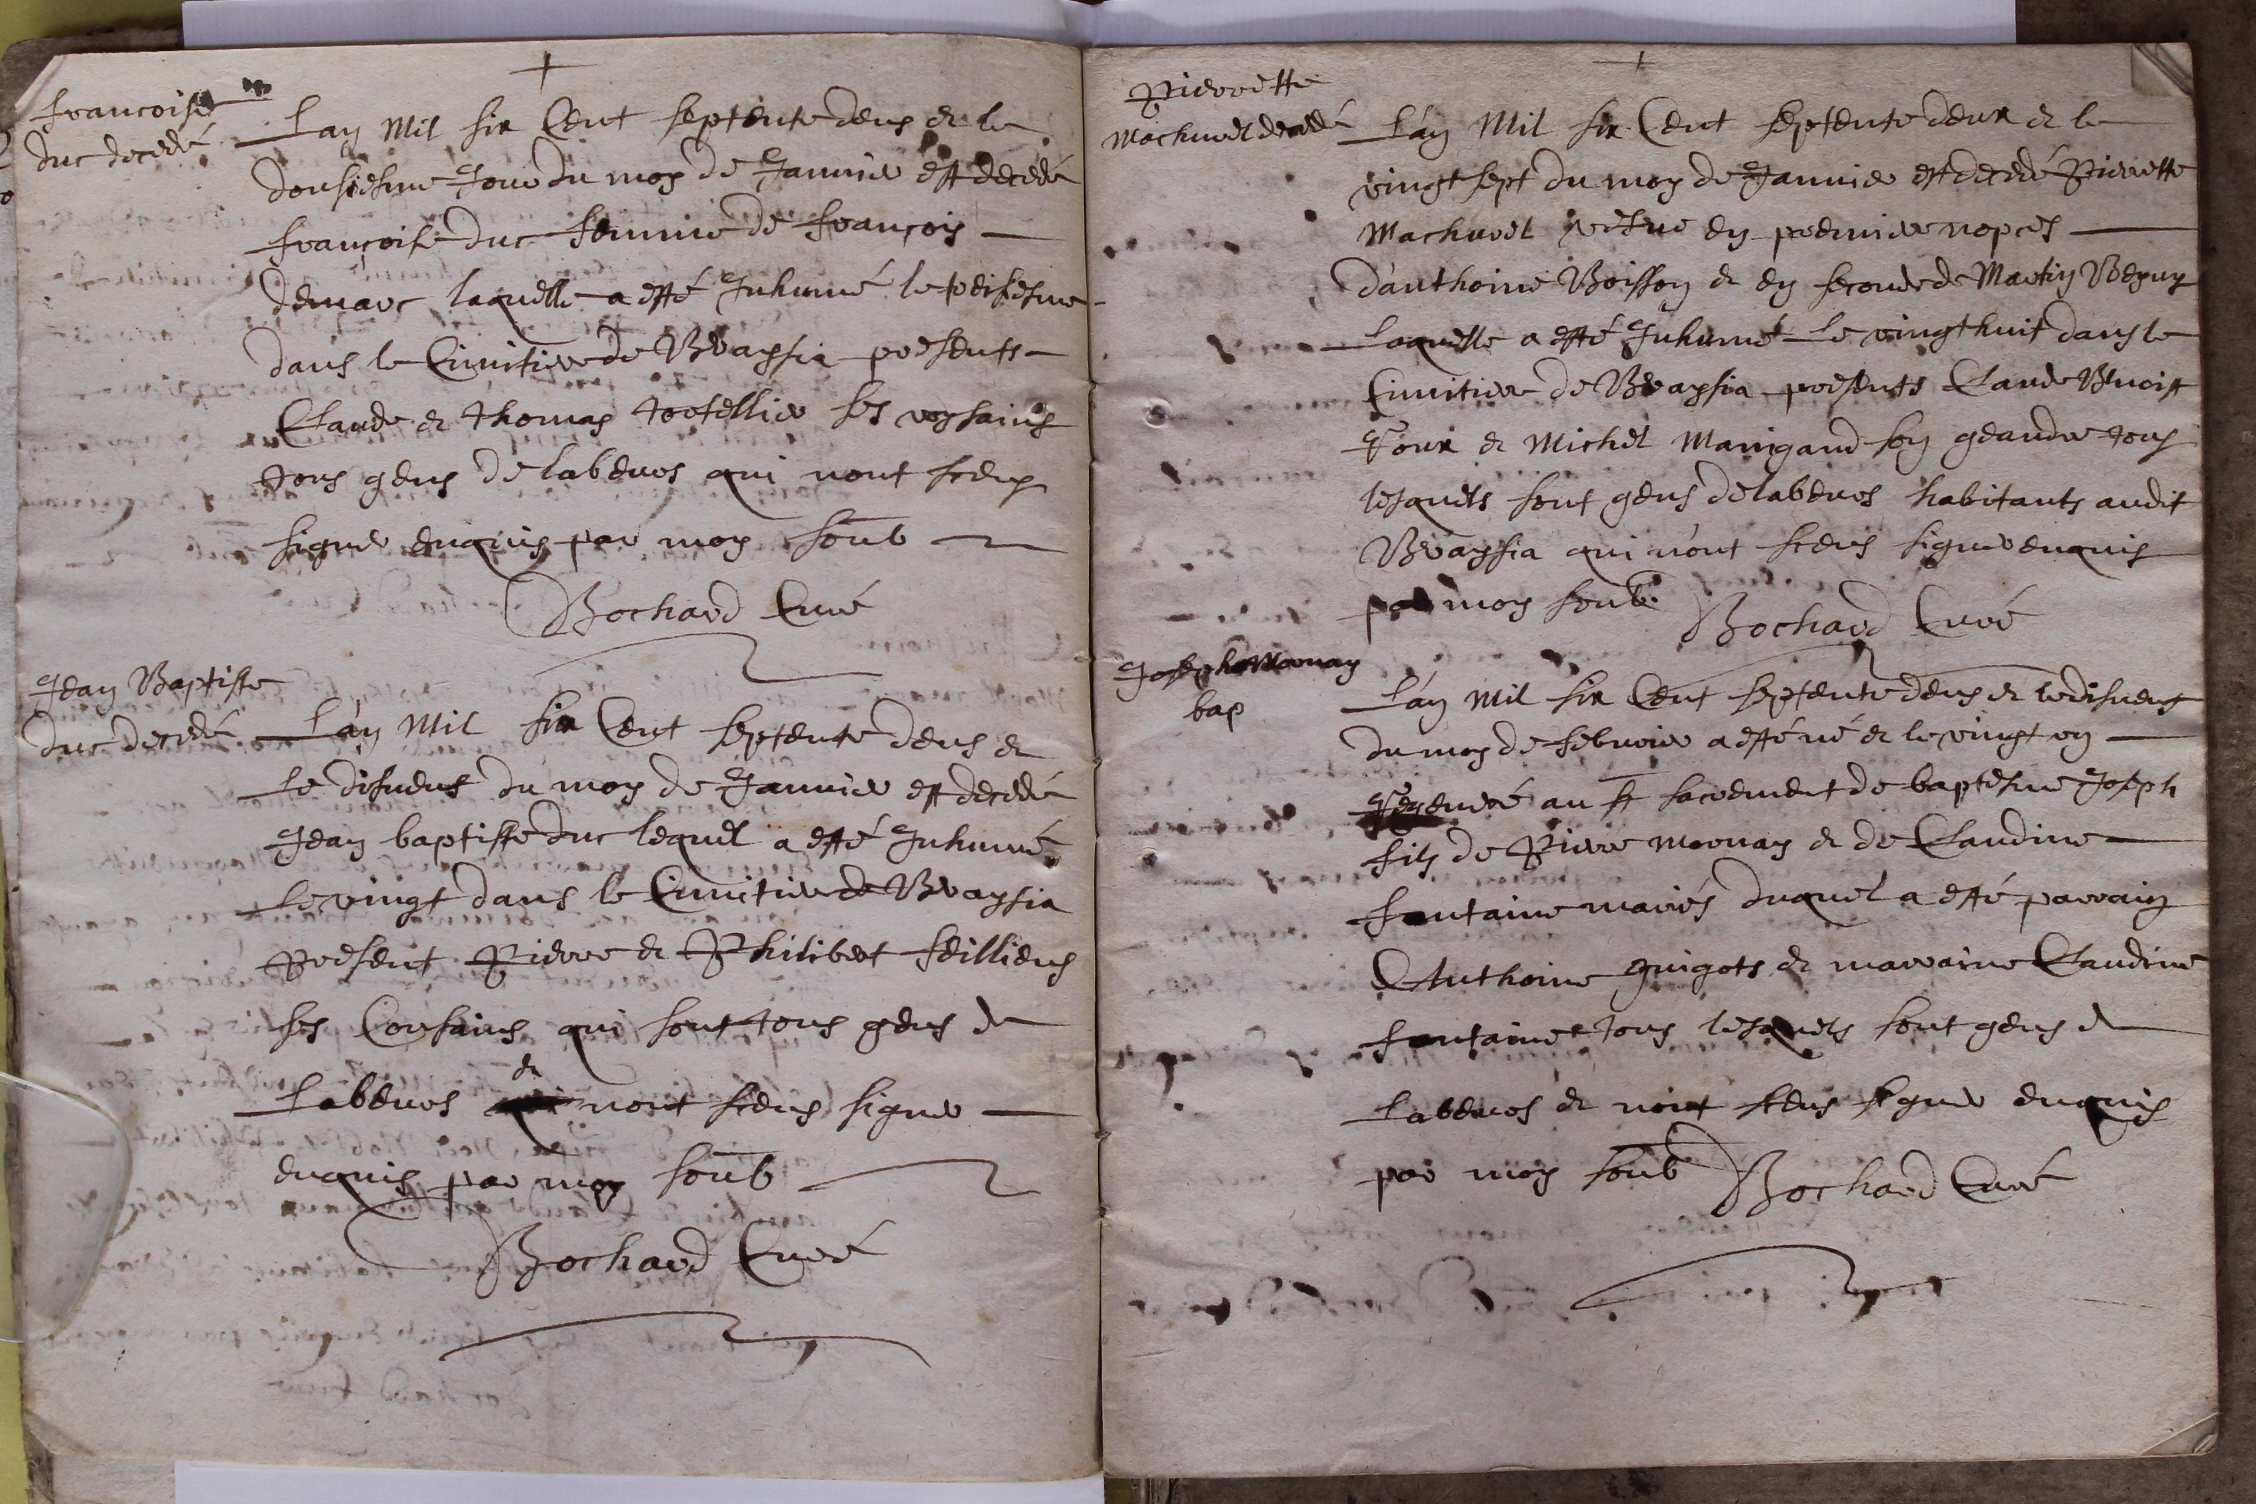 francoise
duc decedé
L'an Mil six Cent septente deus et le
dousiesme Jour du moy de Janvier est decedé
françoise duc femme de françois
demarc laquelle a esté Inhumé le treisiesme
dans le Cimitiere de Brayssia presents
Claude et thomas tortellier ses voysains
tous gens de labeurs qui nont sceus
signer enquis par moy soub
Bochard Curé
Jean Baptiste
duc decedé
L'an Mil six Cent septente deus et
le disneus du moy de Janvier est decedé
Jean baptiste duc lequel a esté Inhumé
le vingt dans le Cimitiere de Brayssia
present Pierre et Philibert feilliens
ses Cousains qui sont tous gens de
labeurs et nont sceus signer
enquis par moy soub
Bochard Curé
Pierrette
Machurel decedé
L'an Mil six Cent septente deux et le
vingt sept du moy de Janvier est decedé Pierrette
Machurel vefue en premier nopces
d'anthoine Boisson et en seconde de Martin
Laquelle a esté Inhumé le vingt huit dans le
Cimitiere de Brayssia presents Claude Benoist
et Michel Manigand son geandre tous
lesquels sont gens de labeurs habitants audit
Brayssia qui n'ont sceus signer enquis
par moy soub.
Bochard Curé
Joseph Moonay
bap
L'an Mil six Cent septente deus et le disneus
du moy de febvrier a esté né et le vingt un
au st sacrement de baptesme Joseph
fils de Pierre moonay et de Claudine
fontaine mariés duquel a esté parrain
Anthoine guigots et marraine Claudine
fontaine tous lesquels sont gens de
labeurs et n'ont sceus signer enquis
par moy soub
Bochard Curé